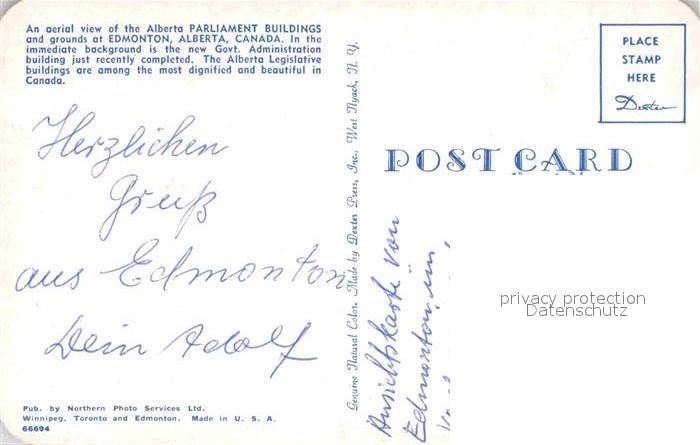 An aerial view of the Alberta PARLIAMENT BUILDINGS
and grounds at EDMONTON, ALBERTA, CANADA. In the
immediate background is the new Govt. Administration
building just recently completed. The Alberta Legislative
buildings are among the most dignified and beautiful in
Canada.
Herzlichen
Gruß
aus Edmonton
Dein Adolf
Pub. by Northern Photo Services Ltd.
Winnipeg, Toronto and Edmonton. Made in U. S. A.
66694
Genuine Natural Color. Made by Dexter Press, Inc., West Nyack, N. Y.
PLACE
STAMP
HERE
Dexter
POST CARD
Ansichtskarte von
Edmonton, im
privacy protection
Datenschutz